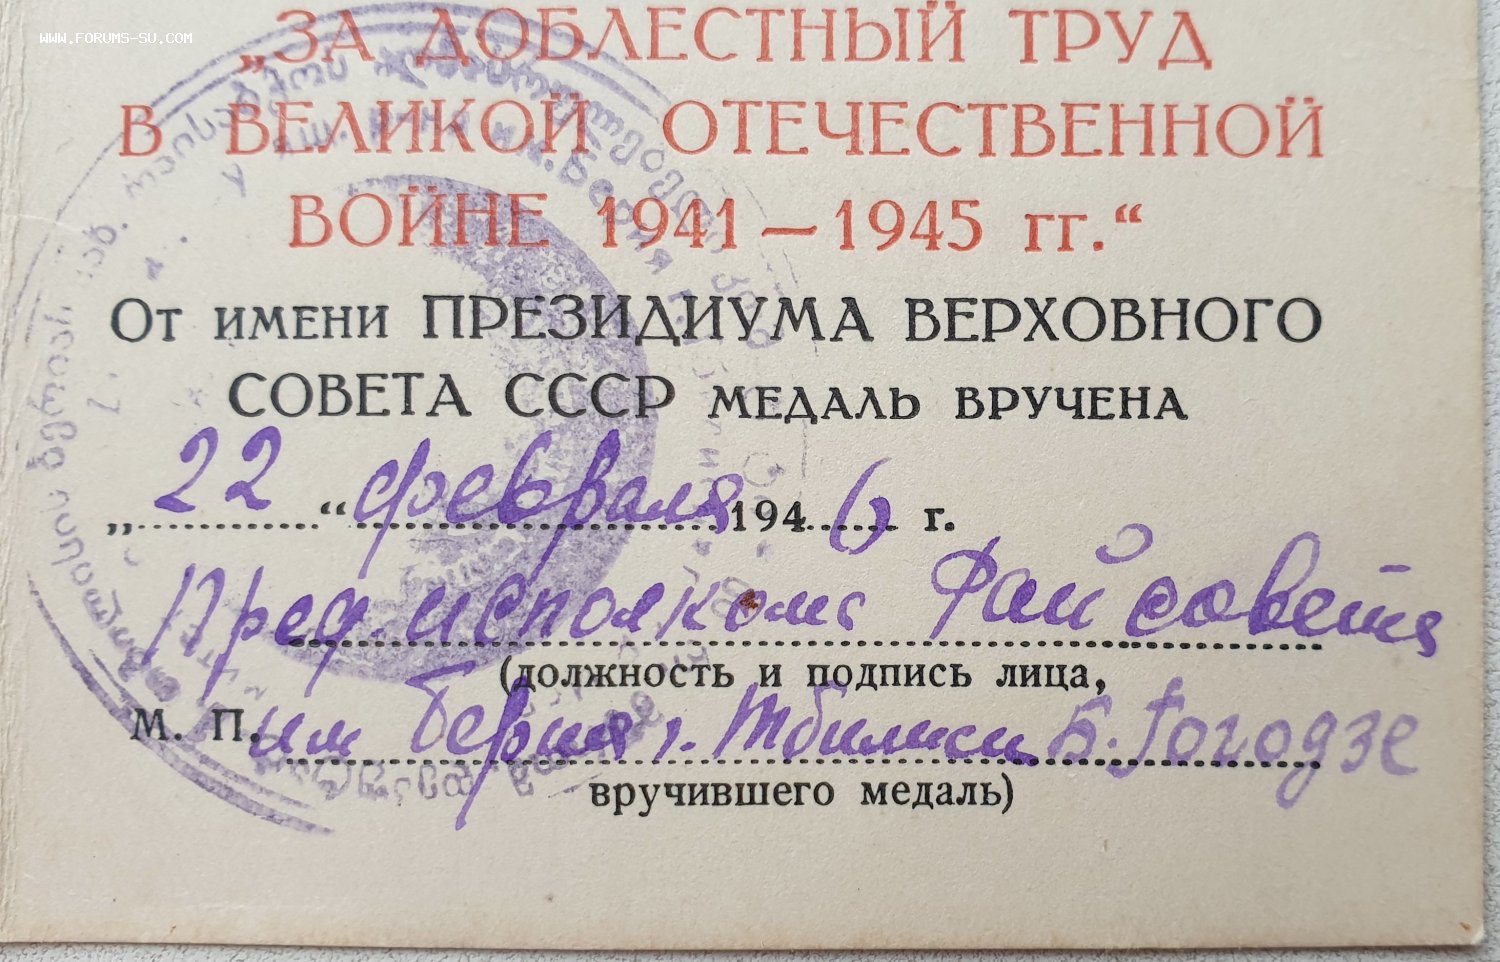 WWW.FORUMS-SU.COM
„ЗА ДОБЛЕСТНЫЙ ТРУД
В ВЕЛИКОЙ ОТЕЧЕСТВЕННОЙ
ВОЙНЕ 1941—1945 гг.“
От имени ПРЕЗИДИУМА ВЕРХОВНОГО
СОВЕТА СССР МЕДАЛЬ ВРУЧЕНА
„22“ февраля 1946 г.
Пред. исполкома Райсовета
(должность и подпись лица,
М. П. им Берия г. Тбилиси Б. Гогодзе
вручившего медаль)